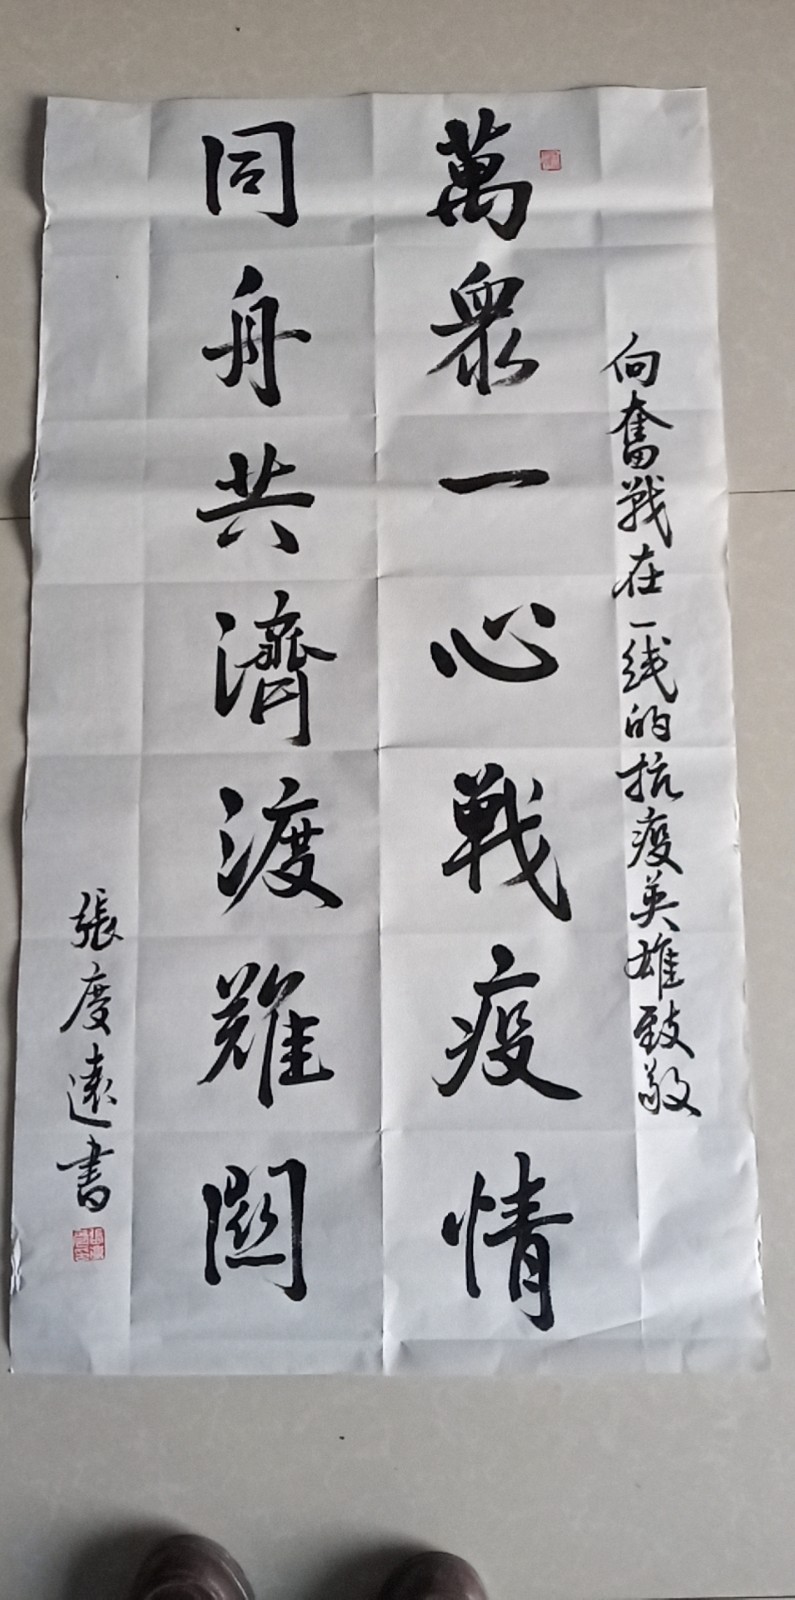 向奮戰在一线的抗疫英雄致敬
萬衆一心戰疫情
同舟共濟渡難關
張度遠書